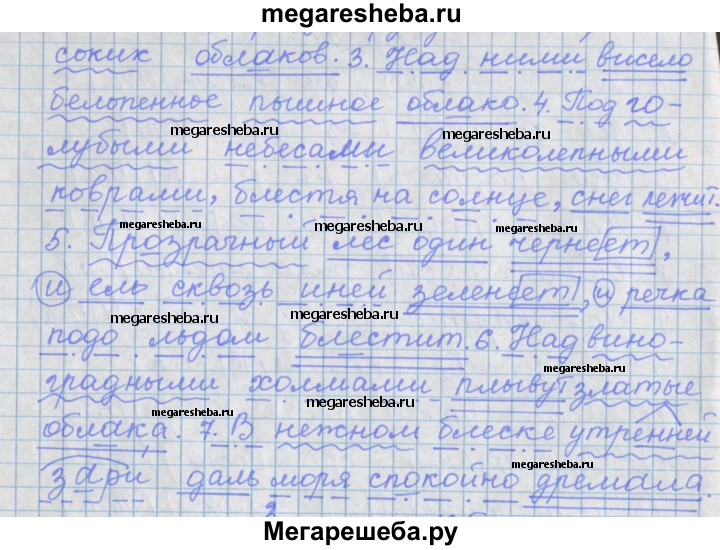 megaresheba.ru
соких облаков. 3. Над ними висело
белопенное пышное облако. 4. Под го-
megaresheba.ru megaresheba.ru
лубыми небесами великолепными
коврами, блестя на солнце, снег лежит.
megaresheba.ru megaresheba.ru megaresheba.ru
5. Прозрачный лес один чернеет,
и ель сквозь иней зеленеет, и речка
подо льдом блестит. 6. Над вино-
megaresheba.ru megaresheba.ru
градными холмами плывут златые
megaresheba.ru megaresheba.ru
облака. 7. В нежном блеске утренней
megaresheba.ru megaresheba.ru
зари даль моря спокойно дремала.
Мегарешеба.ру